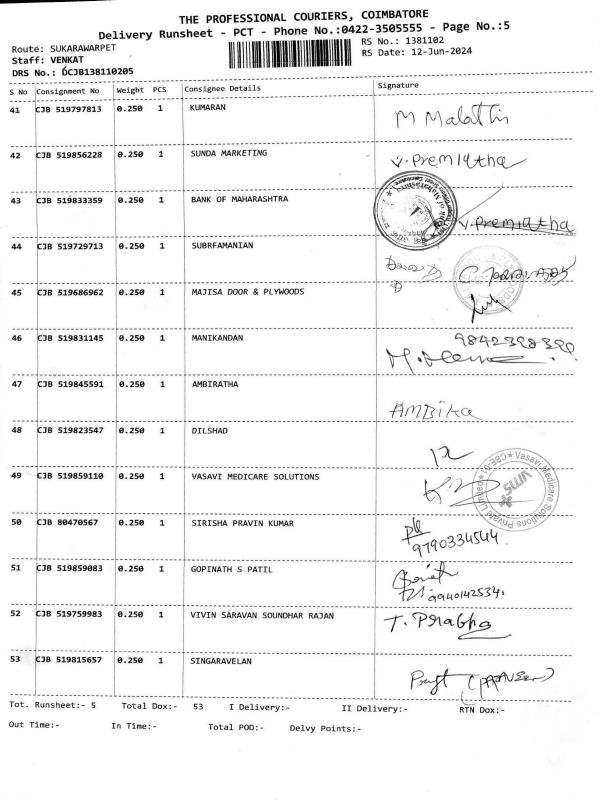 THE PROFESSIONAL COURIERS, COIMBATORE
Delivery Runsheet - PCT - Phone No.:0422-3505555 - Page No.:5
Route: SUKARAWARPET
RS No.: 1381102
Staff: VENKAT
RS Date: 12-Jun-2024
DRS No.: DCJB138110205
S No Consignment No Weight PCS Consignee Details Signature
41 CJB 519797813 0.250 1 KUMARAN M Malathi
42 CJB 519856228 0.250 1 SUNDA MARKETING V. Premlatha
43 CJB 519833359 0.250 1 BANK OF MAHARASHTRA V. Premlatha
44 CJB 519729713 0.250 1 SUBRFAMANIAN
45 CJB 519686962 0.250 1 MAJISA DOOR & PLYWOODS
46 CJB 519831145 0.250 1 MANIKANDAN
47 CJB 519845591 0.250 1 AMBIRATHA AMBika
48 CJB 519823547 0.250 1 DILSHAD
49 CJB 519859110 0.250 1 VASAVI MEDICARE SOLUTIONS
Vasavi Medicare Solutions Private Limited ★ CBE-01 ★
VMS
50 CJB 80470567 0.250 1 SIRISHA PRAVIN KUMAR
9790334544
51 CJB 519859083 0.250 1 GOPINATH S PATIL
9940142534
52 CJB 519759983 0.250 1 VIVIN SARAVAN SOUNDHAR RAJAN T. Prabha
53 CJB 519815657 0.250 1 SINGARAVELAN
Tot. Runsheet:- 5 Total Dox:- 53 I Delivery:- II Delivery:- RTN Dox:-
Out Time:- In Time:- Total POD:- Delvy Points:-